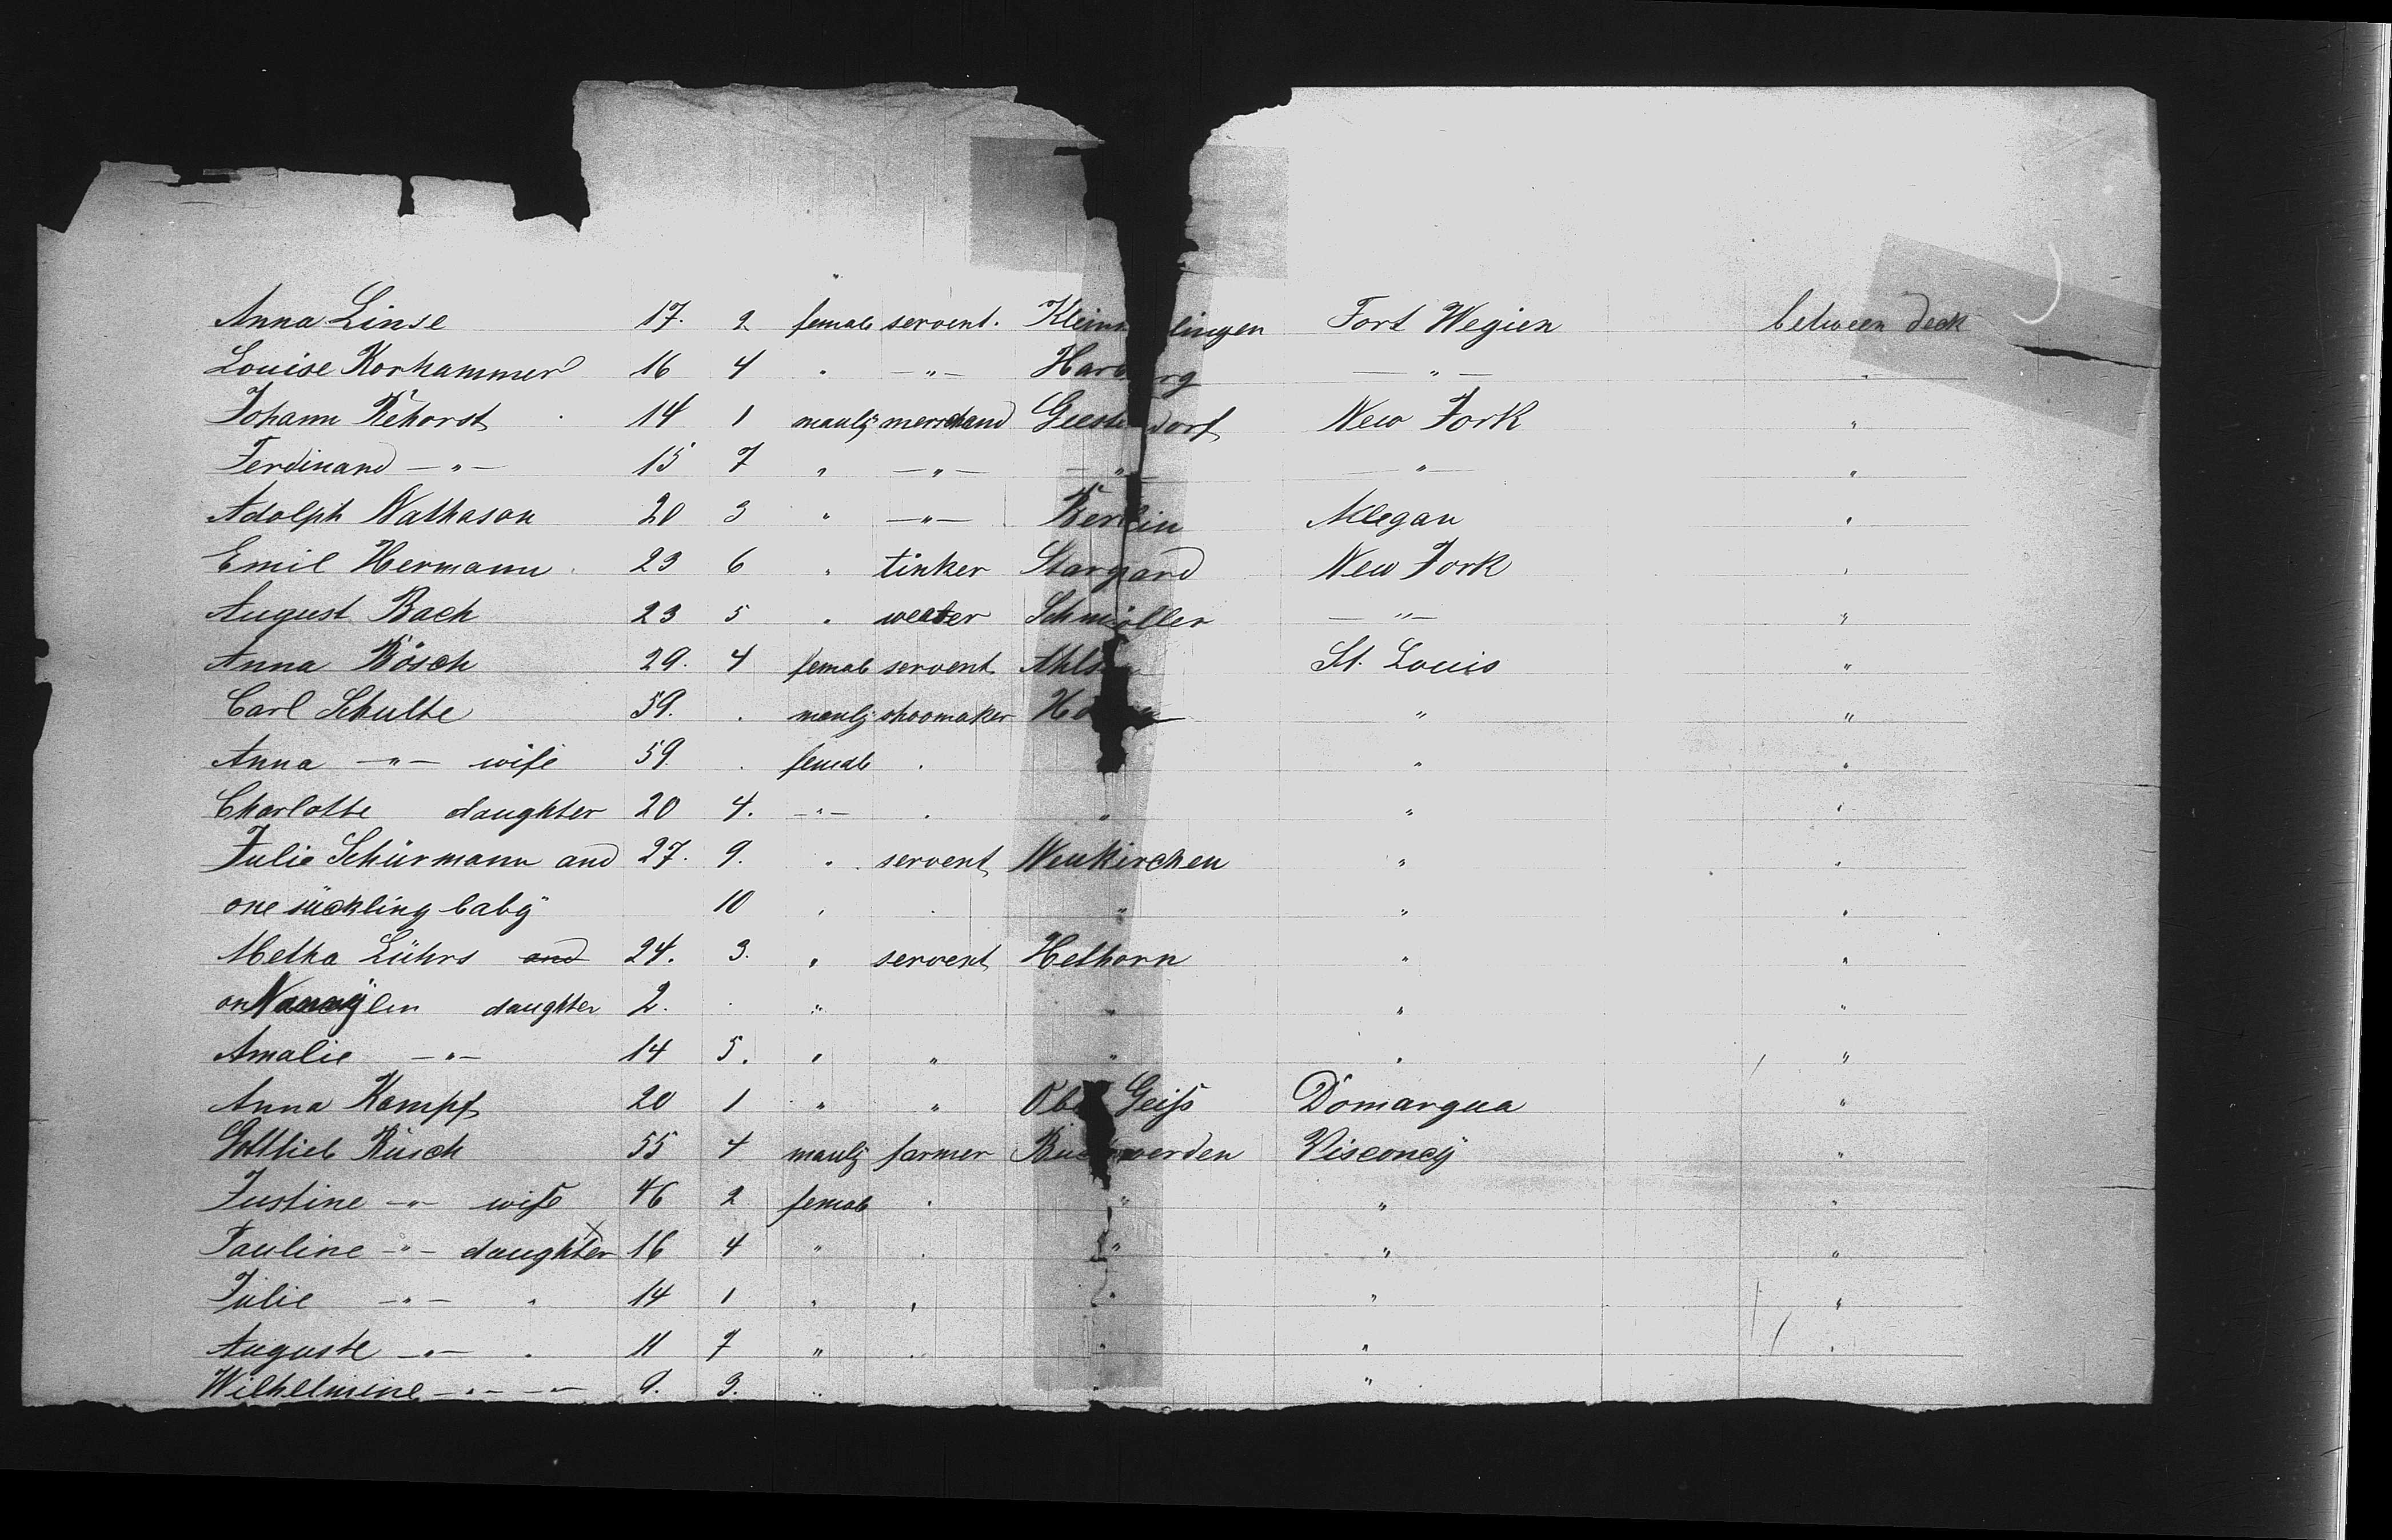 Anna Linse 17. 2 female servent. Klein lingen Fort Wegien between deck
Louise Korhammer 16 4 " —"— Har rg —"— "
Johann Rehorst 14 1 maulj merschand Geeste dorf New York "
Ferdinand —"— 15 7 " —"— —"— —"— "
Adolph Nathason 20 3 " —"— Berlin Allegan "
Emil Hermann 23 6 " tinker Stargard New York "
August Bach 23 5 " Schmöller —"— "
Anna Bösch 29. 4 female servent Ahls St. Louis "
Carl Schulte 59. . maulj shoomaker Ho " "
Anna —"— wife 59. . female . " "
Charlotte daughter 20 4. —"— . " " "
Julie Schürmann and 27. 9. " servent Neukirchen " "
one sückling babÿ 10 " . " " "
Metha Lührs and 24. 3. " servent Helhorn " "
daughter 2. . " " " "
Amalie —"— 14 5. " " " " "
Anna Kampf 20 1 " " Ob Geiſs Domargua "
Gottlieb Rüsch 55 4 maulj farmer Bu werden Visconcÿ "
Justine —"— wife 46 2 female . " " "
Pauline —"— daughter 16 4 " . " " "
Julie —"— " 14 1 " " " " "
Auguste —"— " 11 7 " . " " "
Wilhelmine —"— —"— 9. 3. " " "